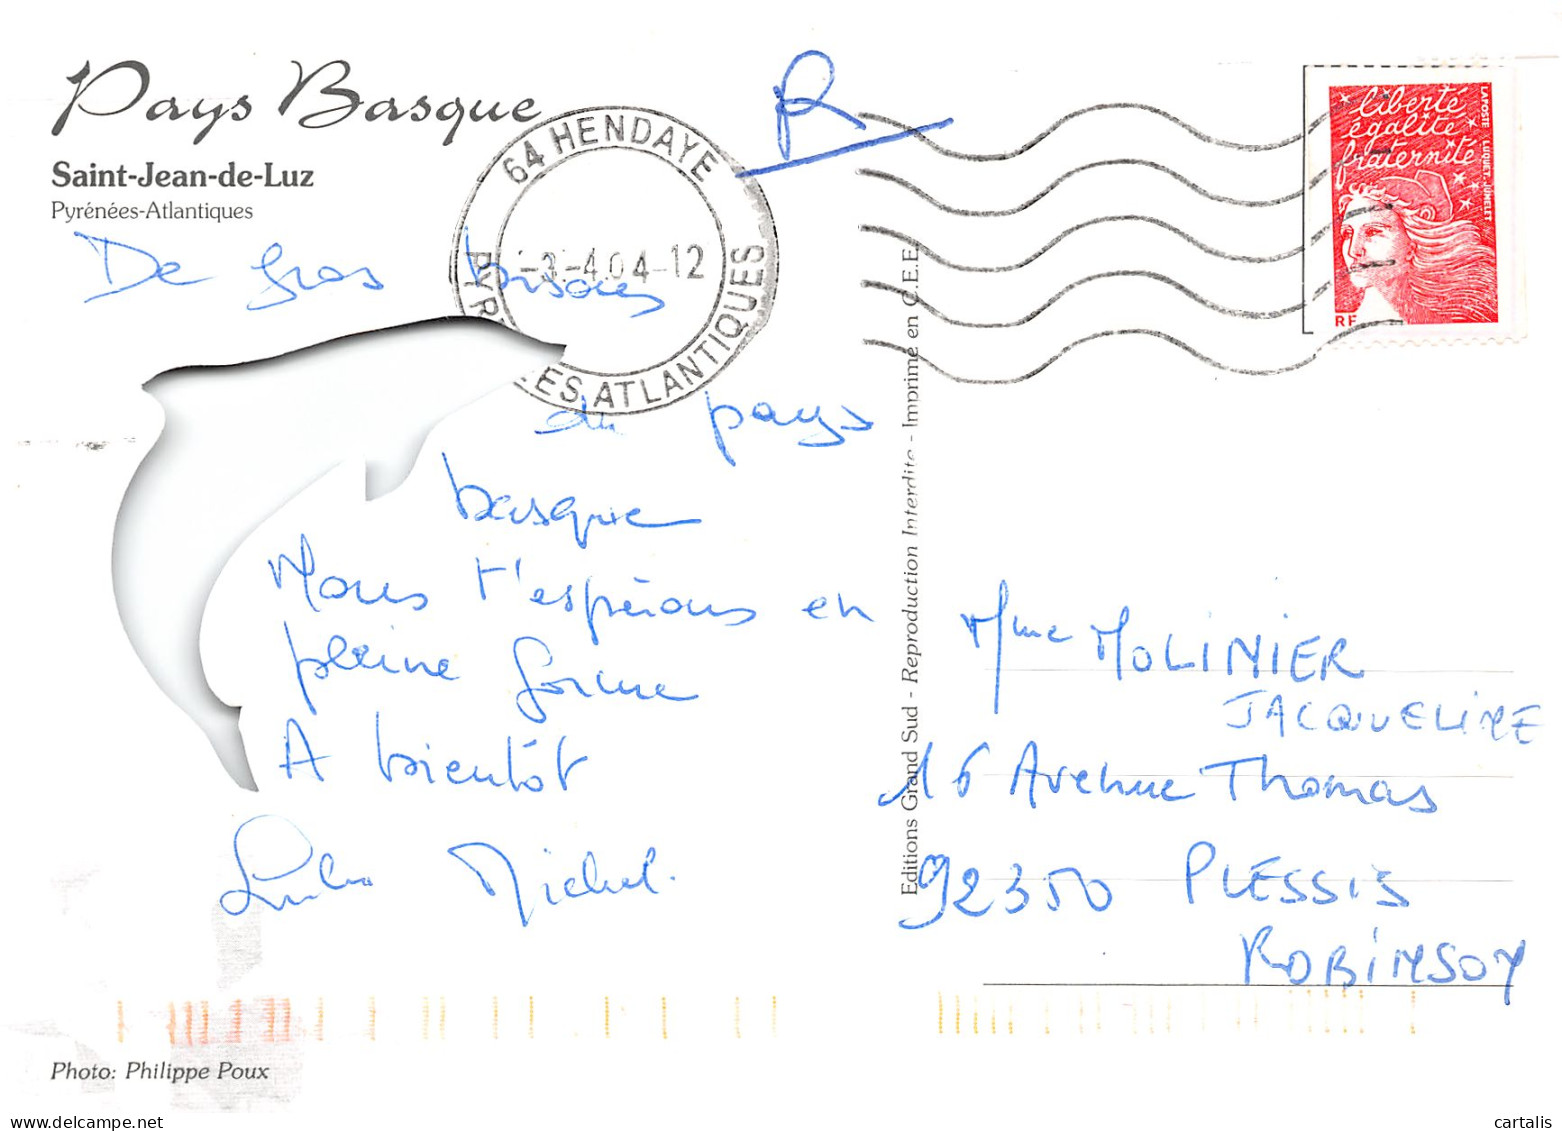 Pays Basque
Saint-Jean-de-Luz
Pyrénées-Atlantiques
64 HENDAYE
-3-4.04-12
PYRENEES ATLANTIQUES
R
liberté
égalité
fraternité
LA POSTE LUQUET-JUMELET
RF
De gros bisous
du pays
basque
Nous t'espérons en
pleine forme
A bientôt
Michel.
Editions Grand Sud - Reproduction Interdite - Imprimé en C.E.E.
Mme MOLINIER
JACQUELINE
16 Avenue Thomas
92350 PLESSIS
ROBINSON
Photo: Philippe Poux
cartalis